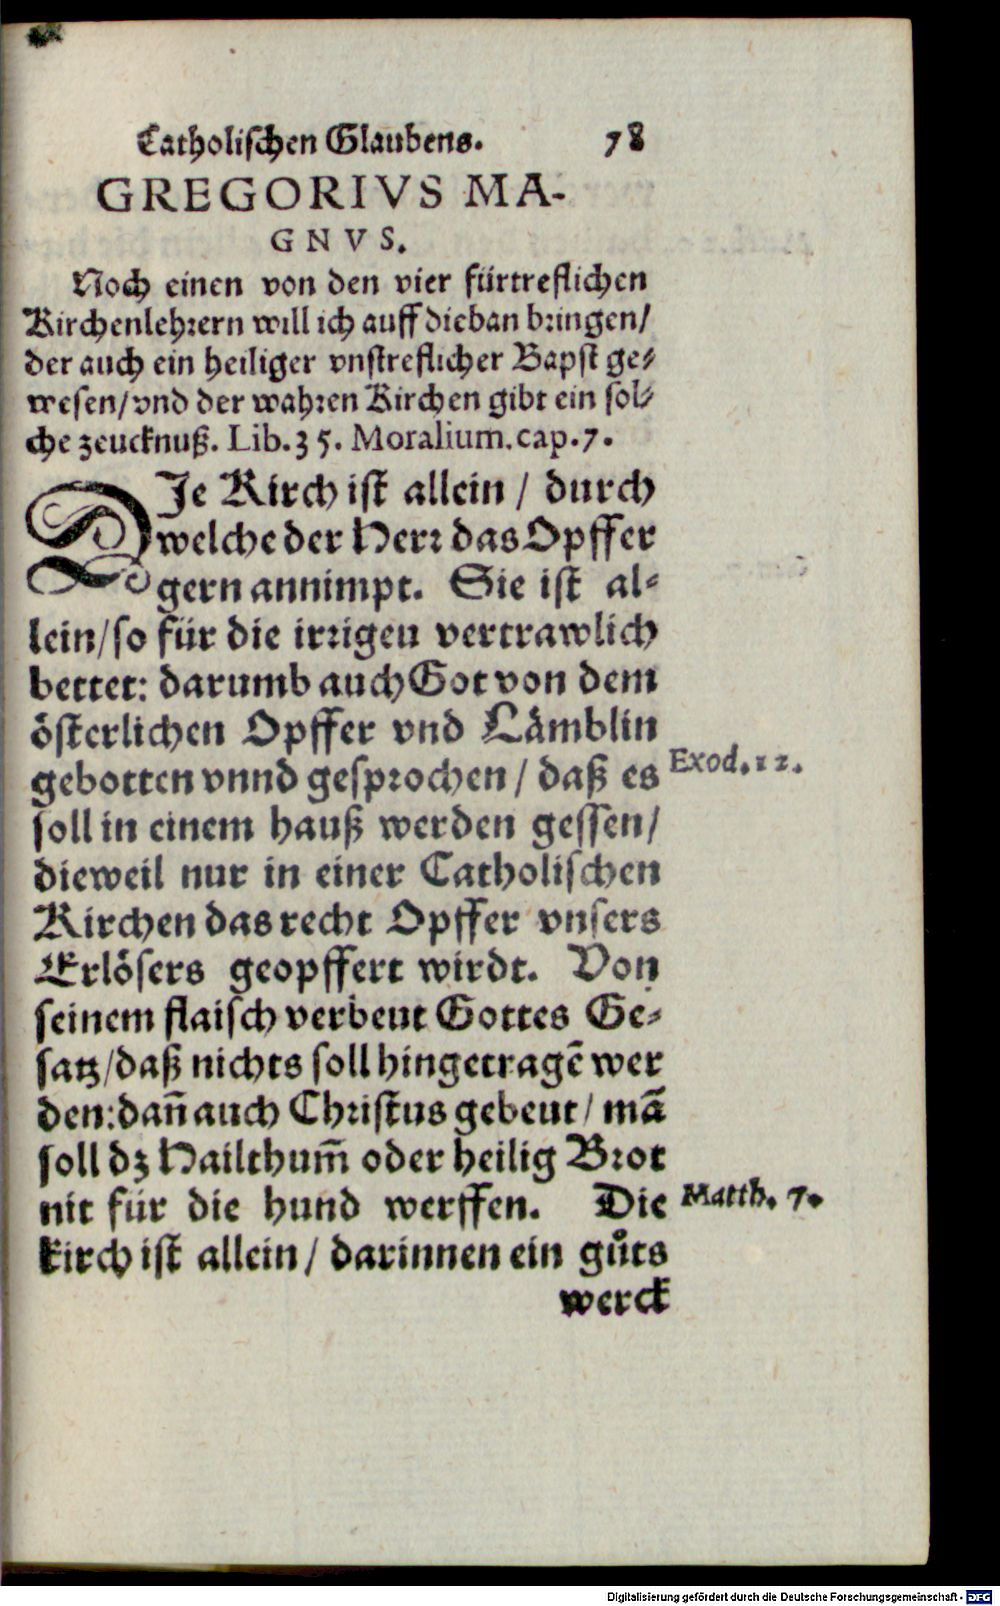 Catholischen Glaubens. 78
GREGORIVS MA-
GNVS.
Noch einen von den vier fürtreflichen
Kirchenlehrern will ich auff dieban bringen/
der auch ein heiliger vnstreflicher Bapst ge-
wesen/vnd der wahren Kirchen gibt ein sol-
che zeucknuß. Lib.35. Moralium.cap.7.
DJe Kirch ist allein / durch
welche der Herr das Opffer
gern annimpt. Sie ist al-
lein/so für die irrigen vertrawlich
bettet: darumb auch Got von dem
österlichen Opffer vnd Lämblin
gebotten vnnd gesprochen / daß es Exod.12.
soll in einem hauß werden gessen/
dieweil nur in einer Catholischen
Kirchen das recht Opffer vnsers
Erlösers geopffert wirdt. Von
seinem flaisch verbeut Gottes Ge-
satz/daß nichts soll hingetragẽ wer
den:dañ auch Christus gebeut/ mã
soll dz Hailthum̃ oder heilig Brot
nit für die hund werffen. Die Matth. 7.
kirch ist allein / darinnen ein gůts
werck
Digitalisierung gefördert durch die Deutsche Forschungsgemeinschaft - DFG